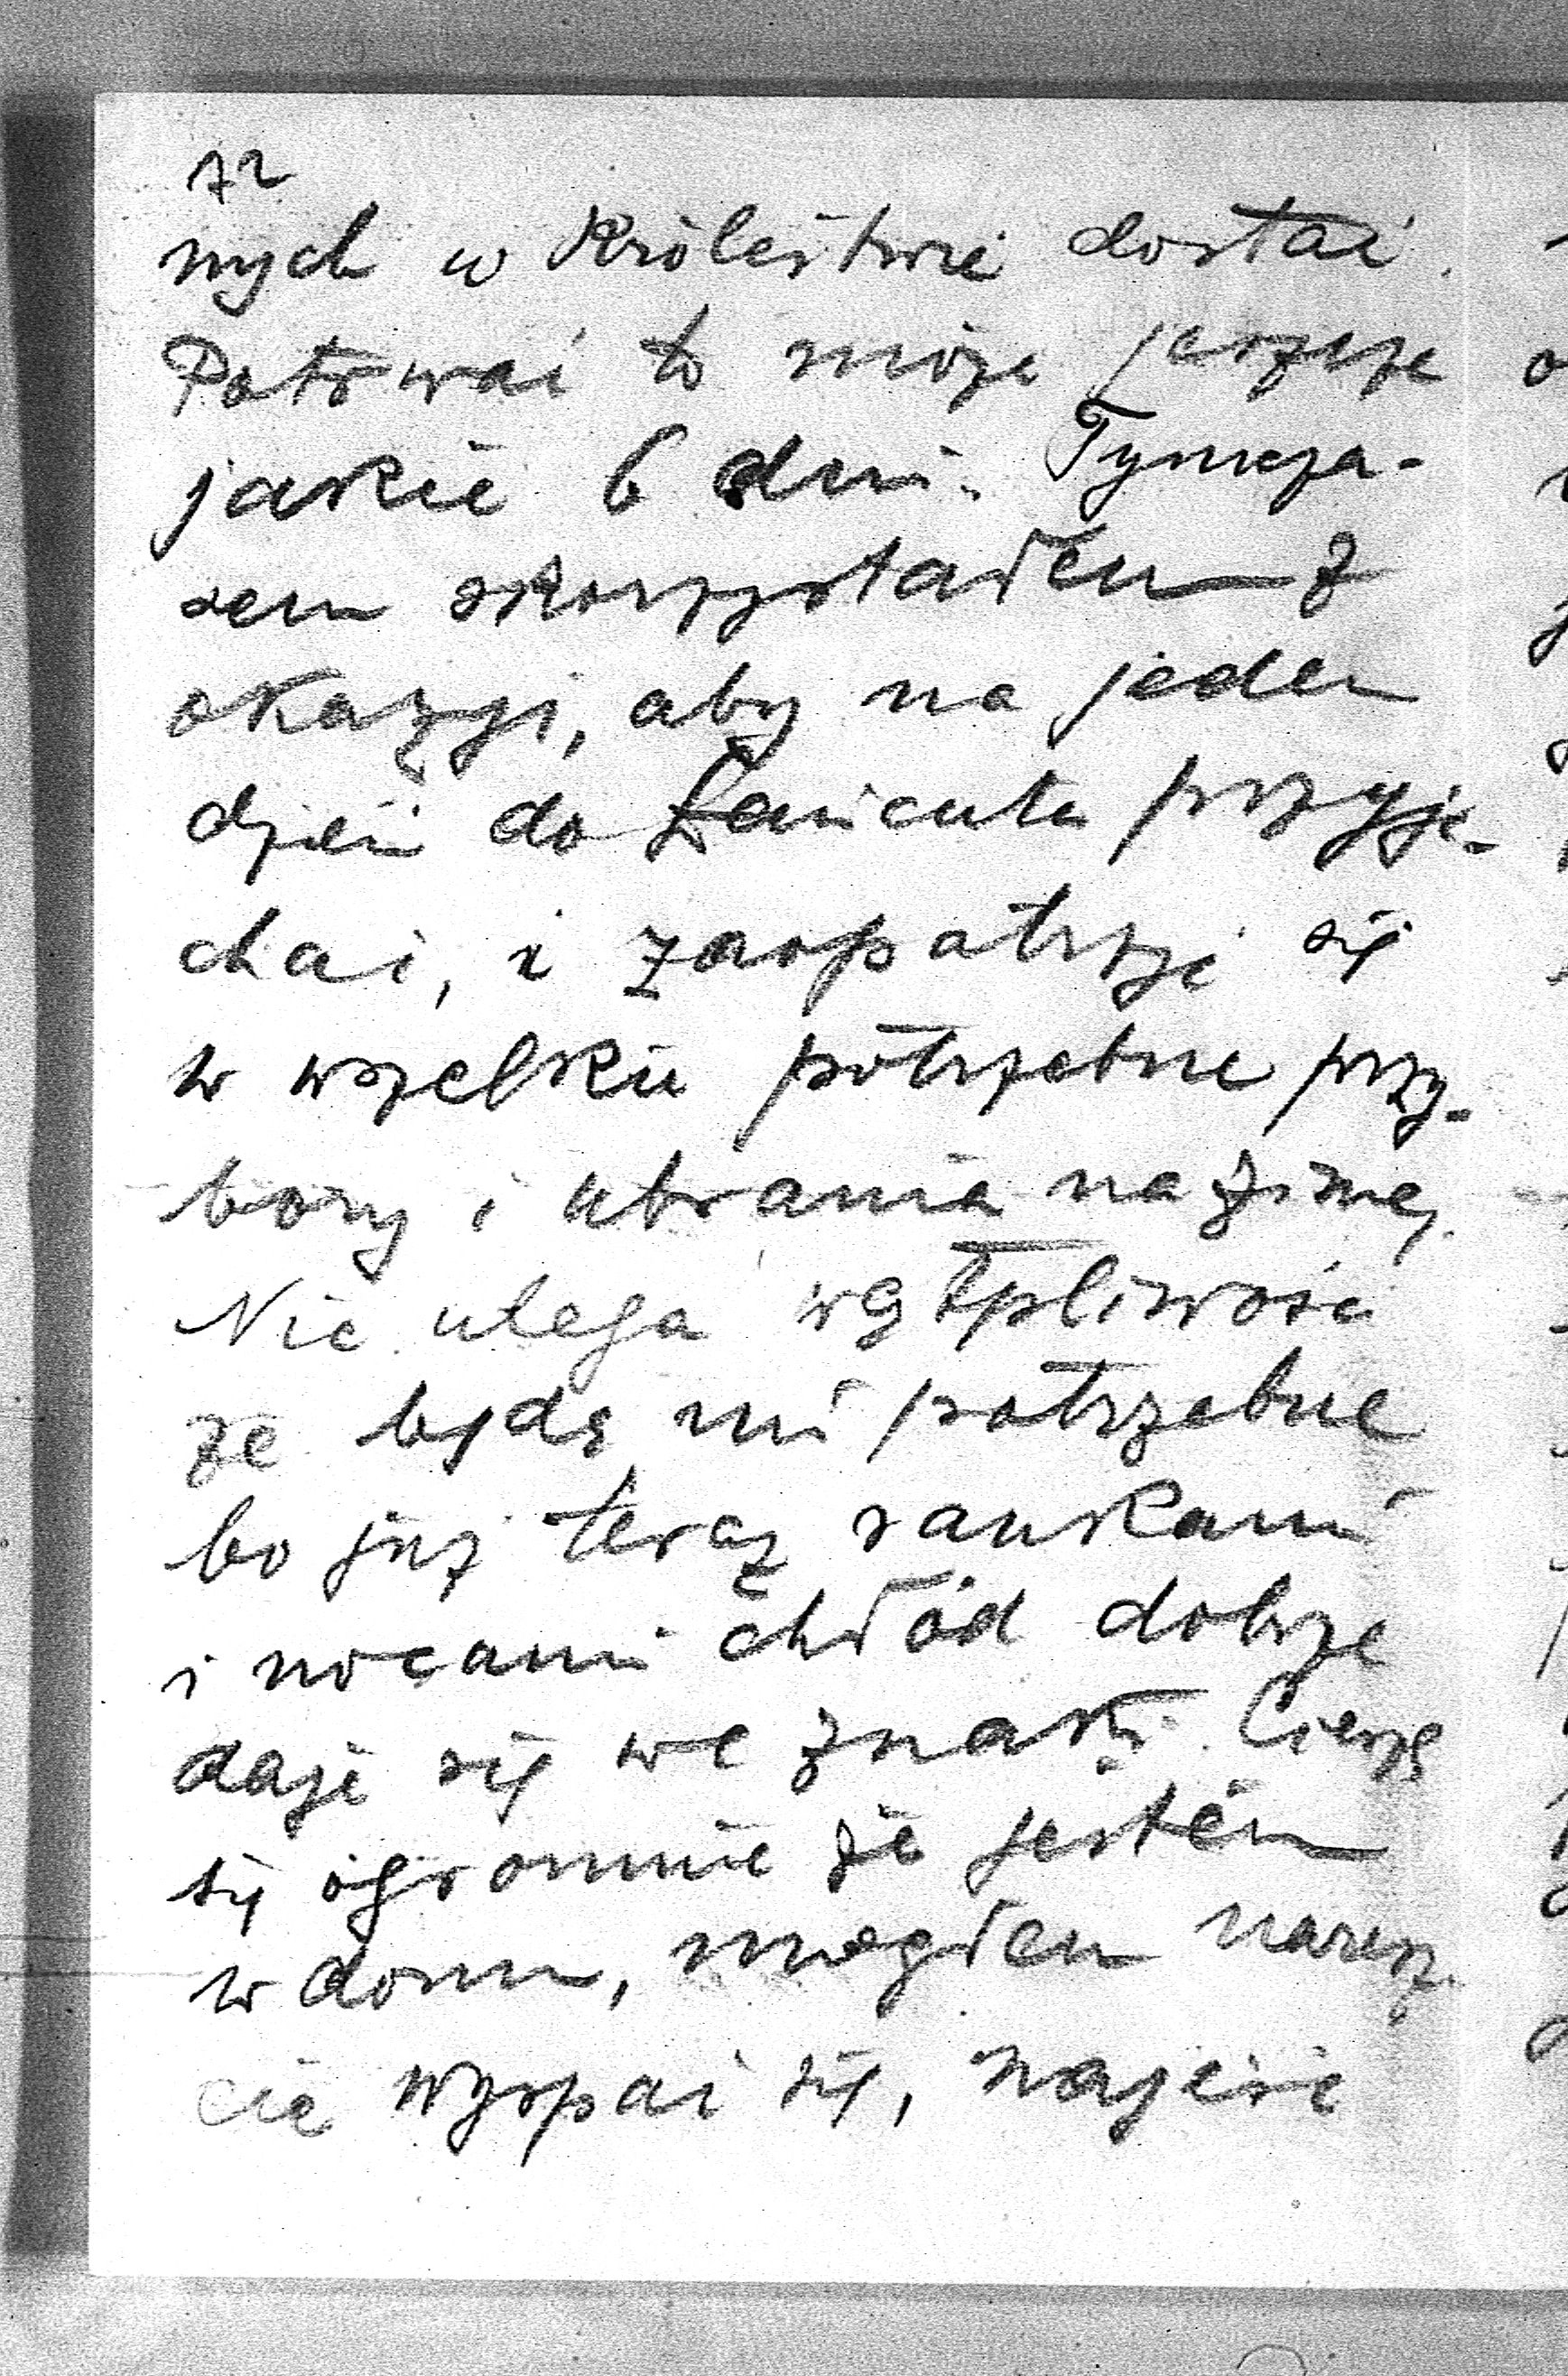 72
nych w Królestwie dostać.
Potrwać to może jeszcze
jakie 6 dni. Tymcza-
sem skorzystałem z
okazyi, aby na jeden
dzień do Łańcuta przyje-
chać, i zaopatrzyć się
w wszelkie potrzebne przy-
bory i ubrania na zimę.
Nie ulega wątpliwości
że będą mi potrzebne
bo już teraz rankami
i nocami chłód dobrze
daje się we znaki. Cieszę
się ogromnie że jestem
w domu, mogłem naresz-
cie wyspać się, najeść